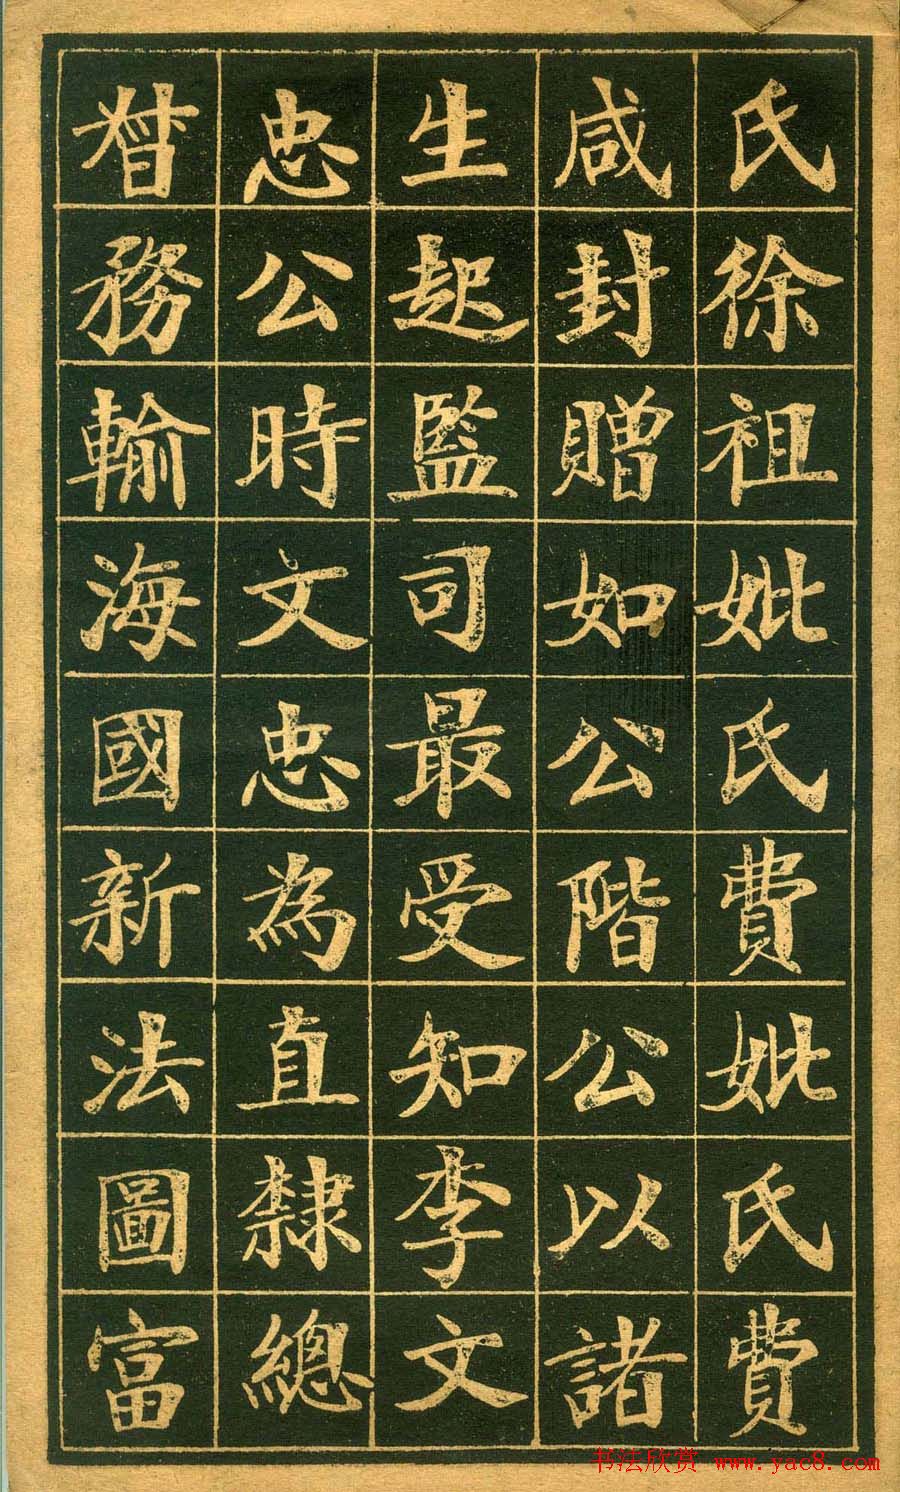 氏徐祖妣氏費妣氏費
咸封贈如公階公以諸
生起監司最受知李文
忠公時文忠為直隸總
督務輸海國新法圖富
书法欣赏 www.yac8.com